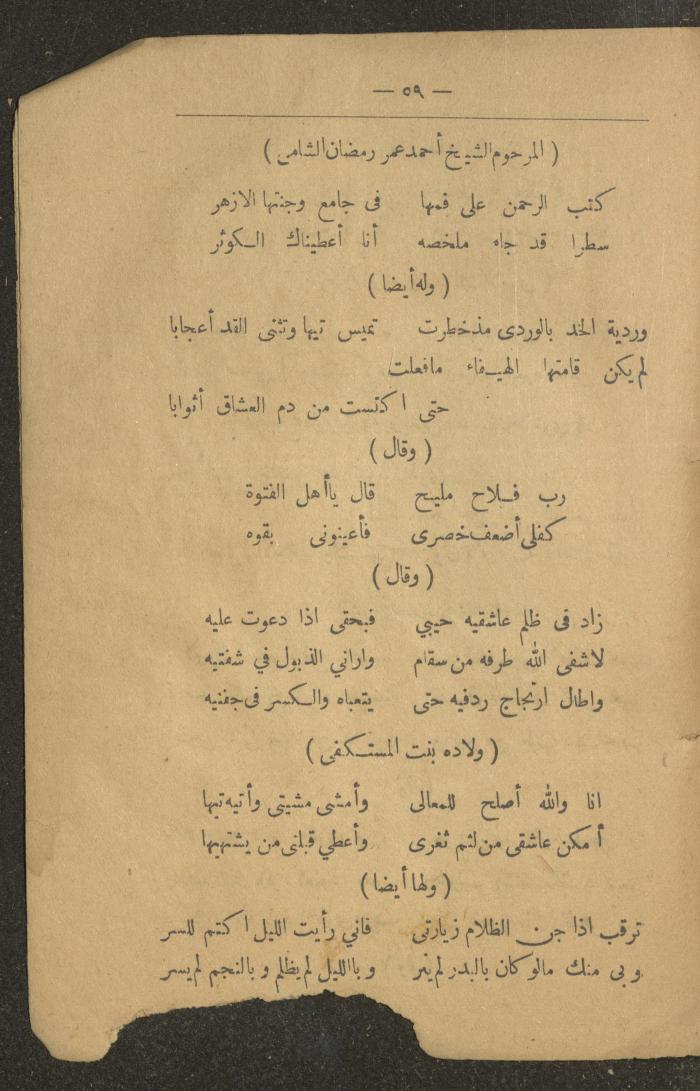 — ٥٩ —
( المرحوم الشيخ أحمد عمر رمضان الشامى )
كتب الرحمن على فمها فى جامع وجنتها الازهر
سطرا قد جاه ملخصه أنا أعطيناك الكوثر
( وله أيضا )
وردية الخد بالوردى مذ خطرت تميس تيها وتثنى القد أعجابا
لم يكن قامتها الهيفاء مافعلت
حتى اكتست من دم العشاق أثوابا
( وقال )
رب فلاح مليح قال ياأهل الفتوة
كفلى أضعف خصرى فأعينونى بقوه
( وقال )
زاد فى ظلم عاشقيه حيبي فبحقى اذا دعوت عليه
لاشفى الله طرفه من سقام وارانى الذبول في شفتيه
واطال ارتجاج ردفيه حتى يتعباه والكسر فى جفنيه
( ولاده بنت المستكفى )
انا والله أصلح للمعالى وأمشى مشيتى وأتيه تيها
أمكن عاشقى من لثم ثغرى وأعطي قبلنى من يشتهيها
( ولها أيضا )
ترقب اذا جن الظلام زيارتى فاني رأيت الليل اكتم للسر
وبى منك مالو كان بالبدر لم ينر وبالليل لم يظلم وبالنجم لم يسر